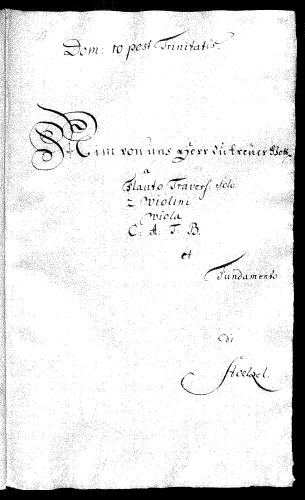 Dom: 10 post Trinitatis.
Nim von uns Herr du treuer Gott
a
Flauto Travers. Solo.
2 Violini
Viola
C. A. T. B.
et
Fundamento
di
Stoelzel.